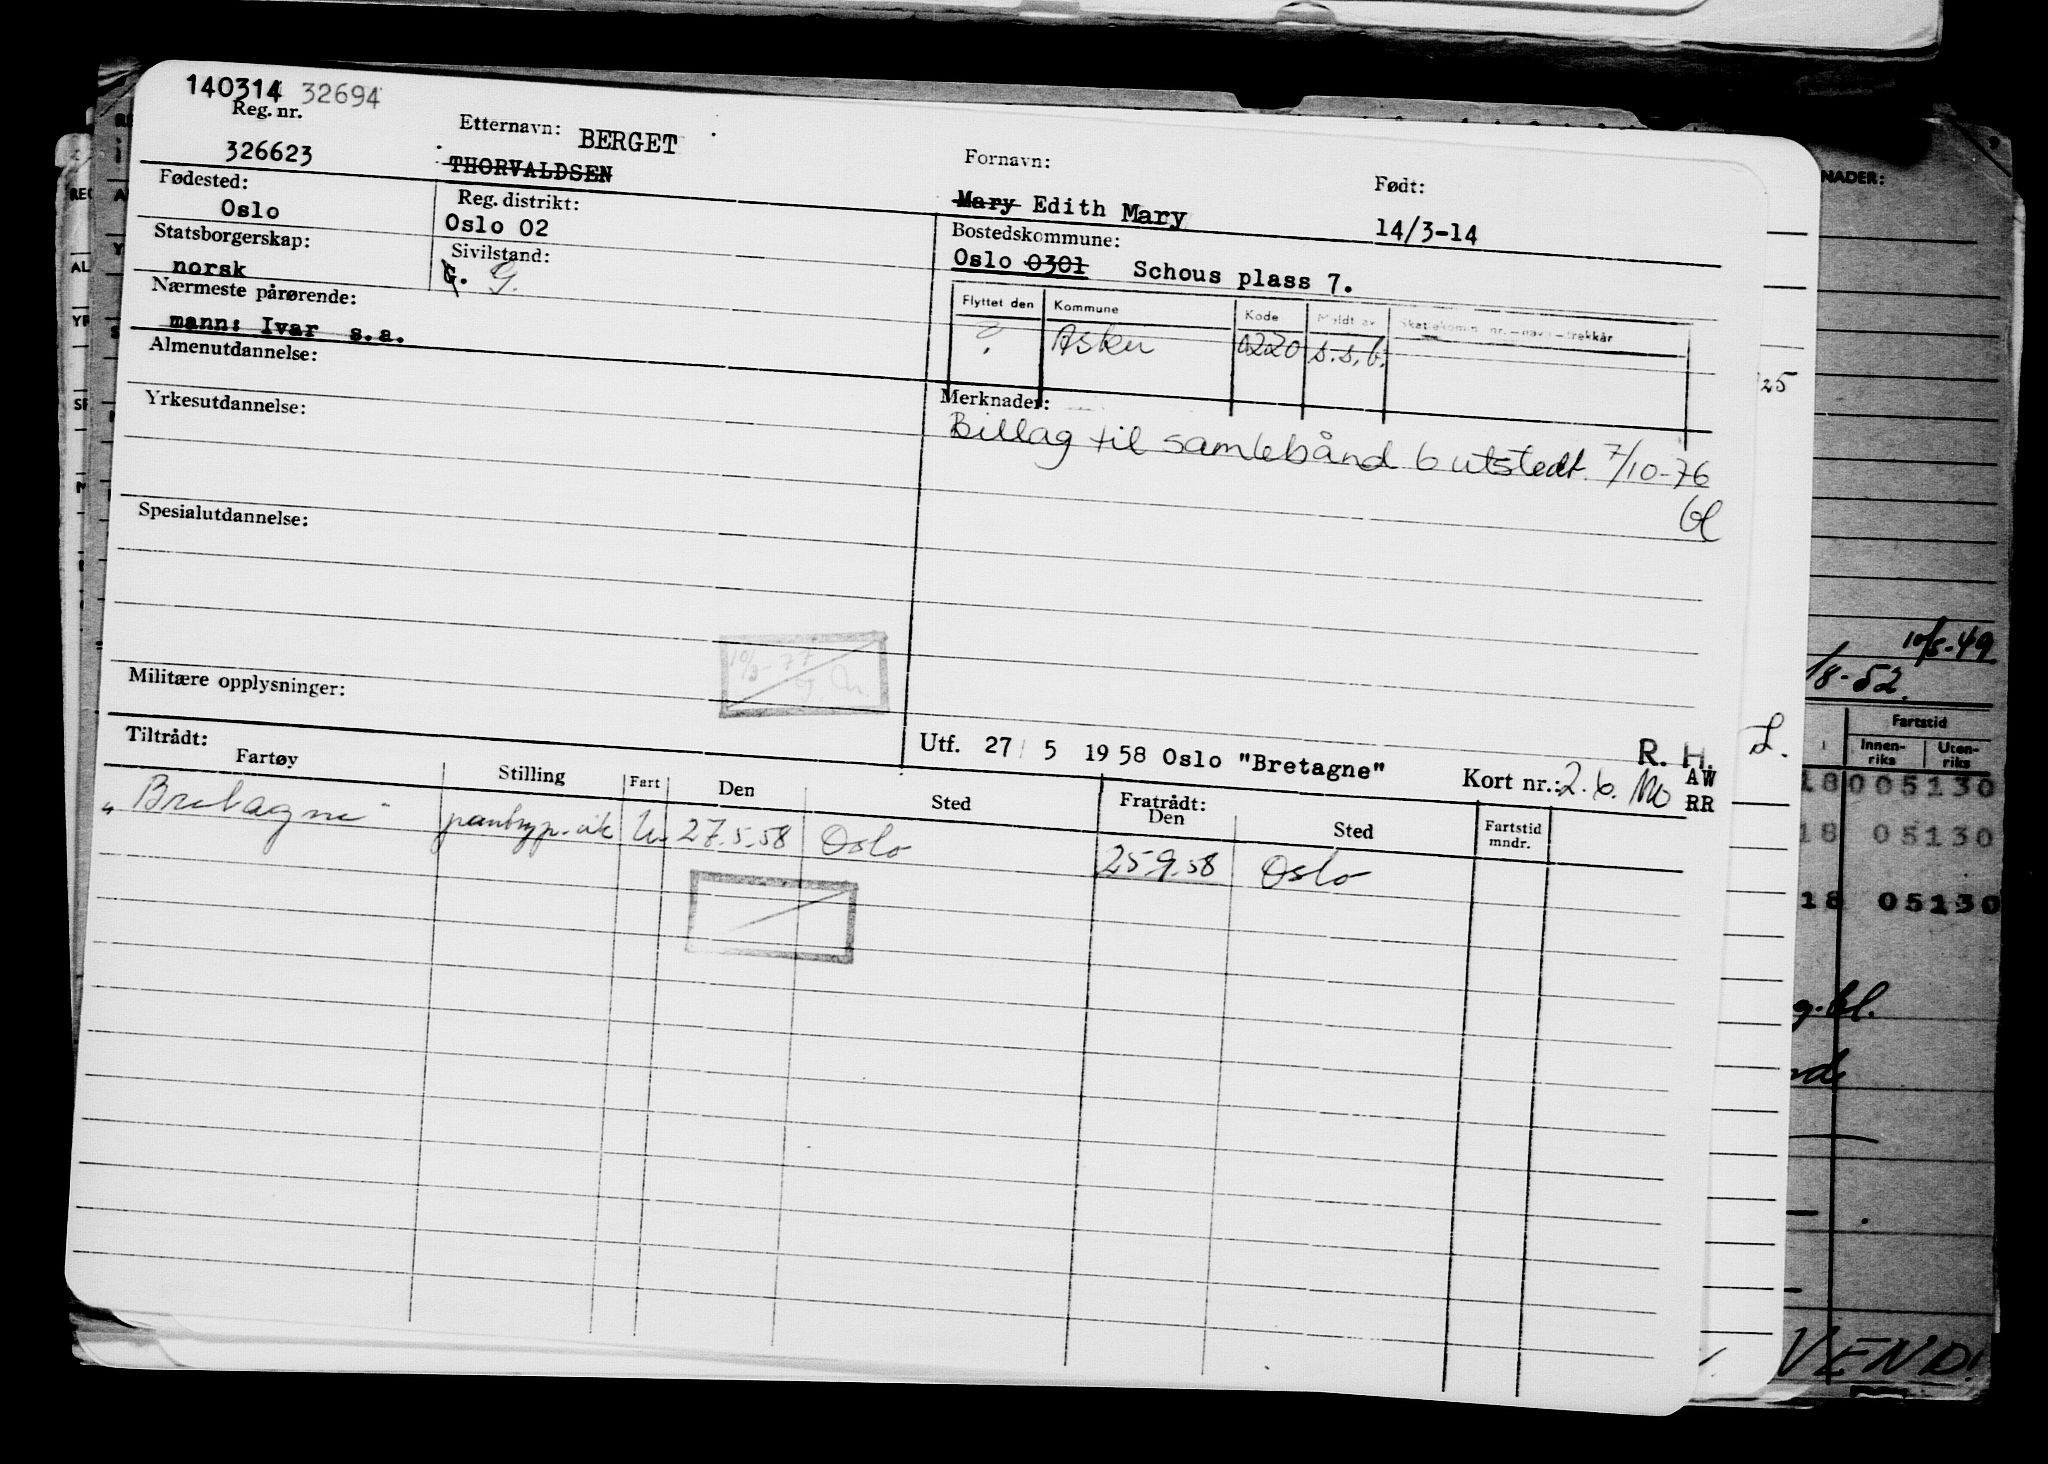 140314 32694
Reg. nr.
326623
Etternavn: BERGET
THORVALDSEN
Fornavn:
Mary Edith Mary
Født:
14/3-14
Fødested:
Oslo
Reg. distrikt:
Oslo 02
Bostedskommune:
Oslo 0301 Schous plass 7.
Statsborgerskap:
norsk
Sivilstand:
G. G.
Flyttet den Kommune Kode Meldt av
? Asker 0220 s.s.b.
Nærmeste pårørende:
mann: Ivar s.a.
Almenutdannelse:
Merknader:
Billag til samlebånd 6 utstedt 7/10-76
bl
Yrkesutdannelse:
Spesialutdannelse:
10/3-77
Militære opplysninger:
Utf. 27 5 1958 Oslo "Bretagne"
R. H.
Kort nr.: 2.6. AW
RR
Tiltrådt:
Fartøy Stilling Fart Den Sted Fratrådt:
Den Sted Fartstid
mndr.
"Bretagne" U. 27.5.58 Oslo 25.9.58 Oslo
NADER:
25
10/5-49
/8-52.
L.
Fartstid
Innen-
riks
Uten-
riks
18 005130
18 05130
18 05130
VEND!